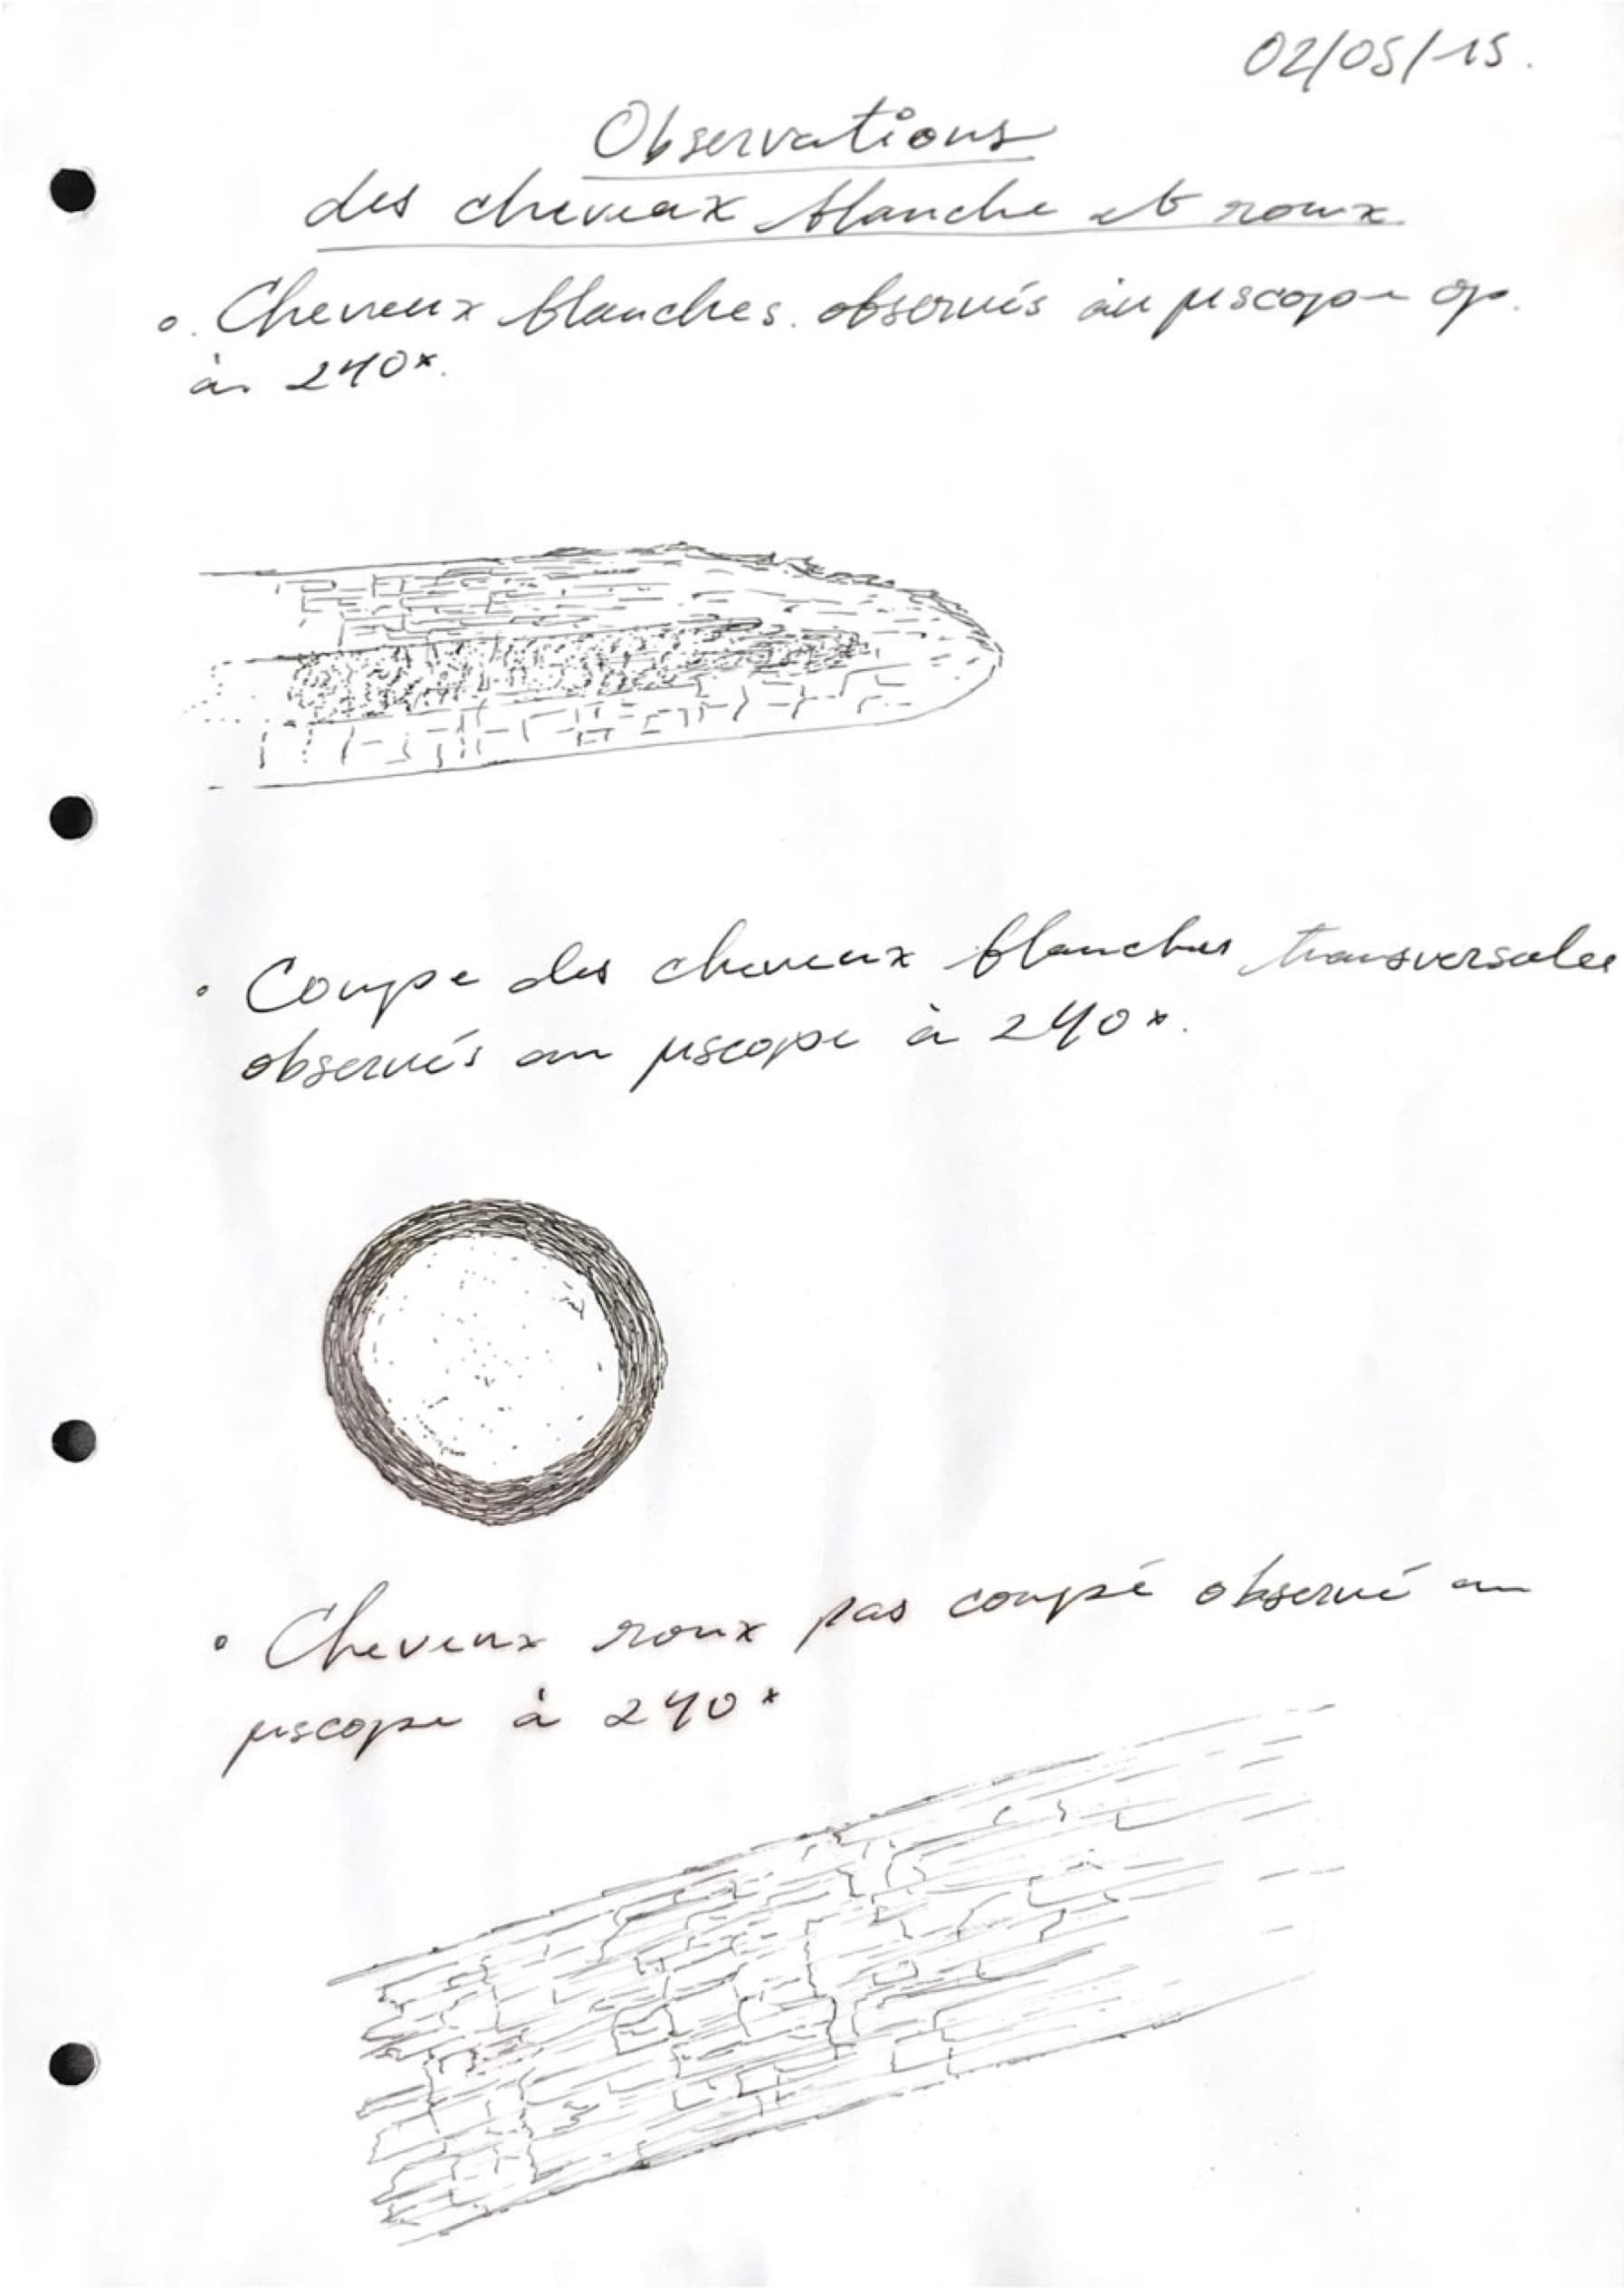 02/05/15.
Observations
des cheveux blanche et roux
Cheveux blanches. observés au µscope op.
à 240x.
Coupe des cheveux blanches transversales
observés au µscope à 240x.
Cheveux roux pas coupé observé au
µscope à 240x